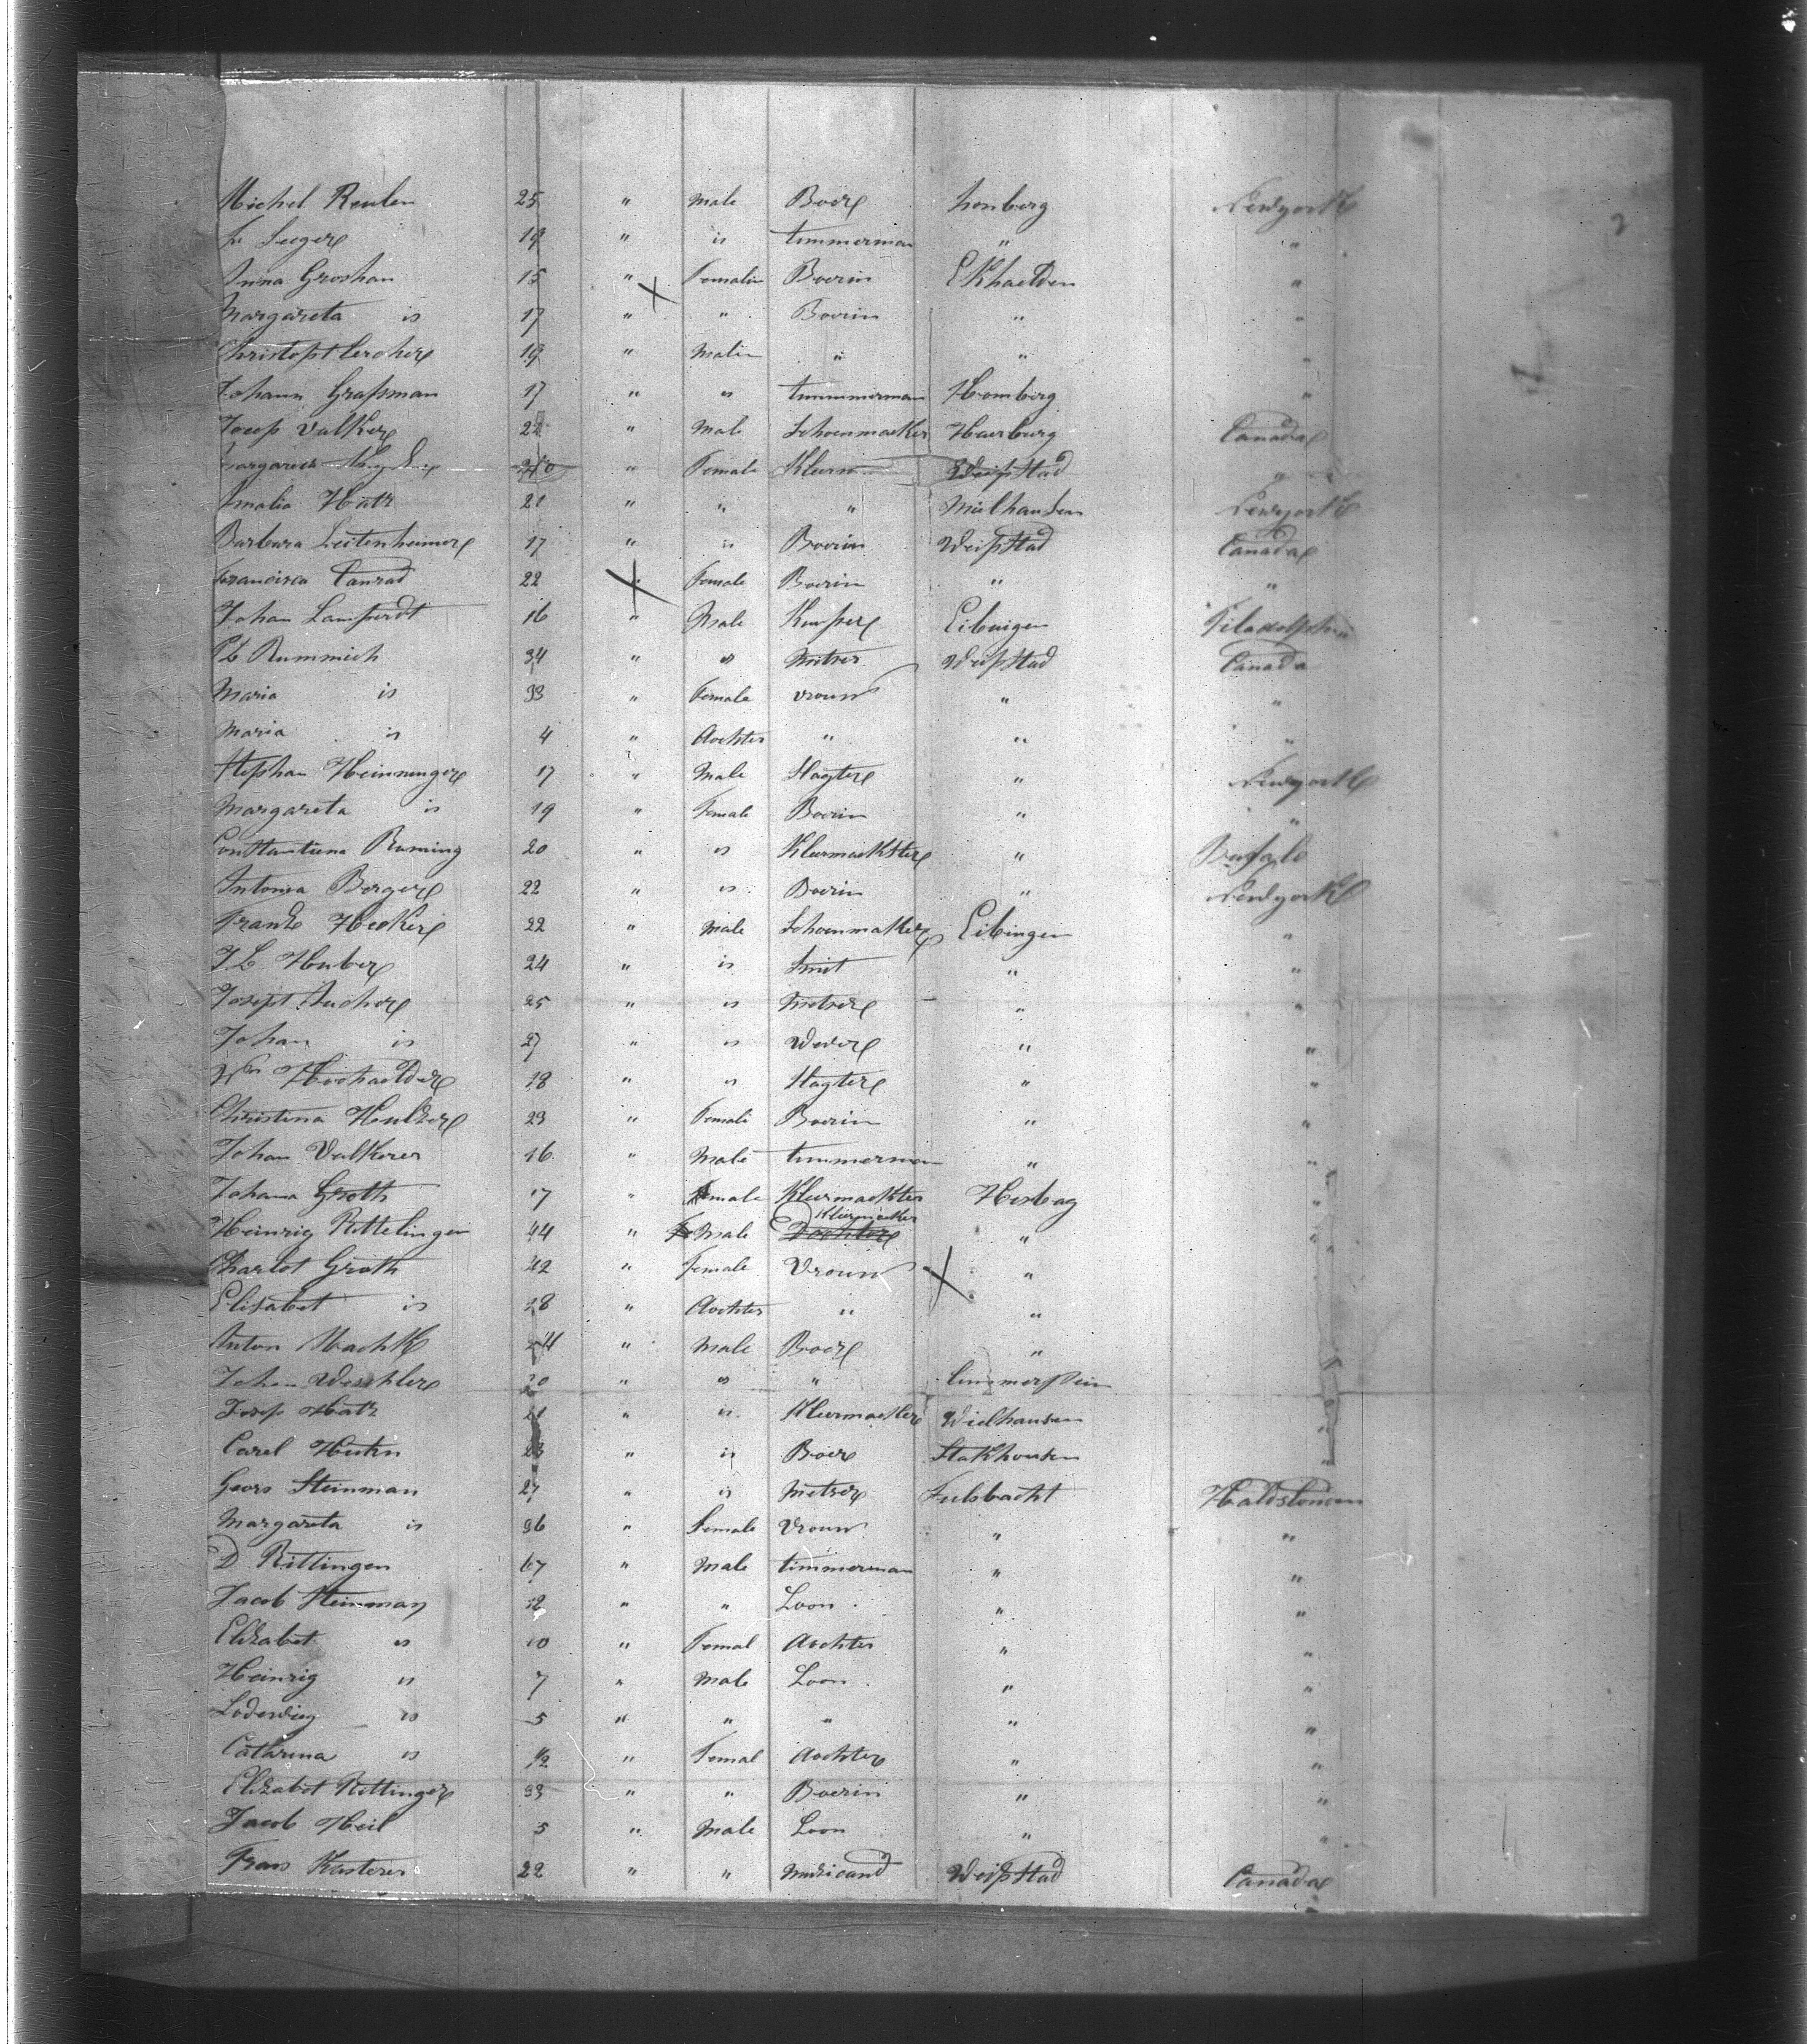 Michel Reulen 25 " Male Boer Homberg Newyork
Fr Seeger 19 " is timmerman " "
Anna Groshan 15 " Femalin Boerin Ekhaelden "
Margareta is 17 " " Boerin " "
Christoph Lercher 19 " Malin " " "
Johann Graßman 17 " is timmerman Homberg "
Josep Valker 22 " Male Schoenmaeker Haerburg Canada
Margareta " Female Kleerm Weißstad "
Amalia Hatz 21 " " " Mielhausen Newyork
Barbara Leitenheimer 17 " is Boerin Weißstad Canada
Francisca Conrad 22 " Female Boerin " "
Johan Lamperdt 16 " Male Kuyper Eibingen Filadelphia
Pb Rummich 34 " is Metser Weißstad Canada
Maria is 33 " Female vrouw " "
Maria is 4 " dochter " " "
Stephan Heinninger 17 " Male Slagter " Newyork
Margareta is 19 " Female Boerin " "
Constantiena Ruming 20 " is Kleermaekster " Bufalo
Antonia Berger 22 " is Boerin " Newyork
Frank Hecker 22 " Male Schoenmaker Eibingen "
J B Huber 24 " is Smit " "
Joseph Aucher 25 " is Metser " "
Johan is 27 " is Wever " "
Wm Hochaelder 18 " is Slagter " "
Christina Hulzer 23 " Female Boerin " "
Johan Valkerer 16 " Male timmerman " "
Johana Groth 17 " Female Kleermaekter Hosbag "
Heinrig Rittelingen 44 " Male Dochter Kleermaeker " "
Charlot Groth 42 " Female Vrouw " "
Elisabet is 28 " dochter " "
Anton Hachk 24 " Male Boer "
Johan Weschler 20 " is "
Josep Hatz 21 " is Kleermaeker Wielhausen "
Carel Huhn 23 " is Boer Stokhousen "
Geors Steinman 27 " is Metser Fulsbacht
Margareta is 36 " Female Vrouw " "
D Rittingen 67 " Male timmerman " "
Jacob Steinman 12 " " Zoon " "
Elizabet is 10 " Femal dochter " "
Heinrig is 7 " Male Zoon " "
Lodewieg is 5 " " " " "
Cathrina is 1/2 " Femal dochter " "
Elizabet Rittinger 33 " " Boerin " "
Jacob Heil 5 " Male Zoon " "
Frans Kasterer 22 " " Musicand Weißstad Canada